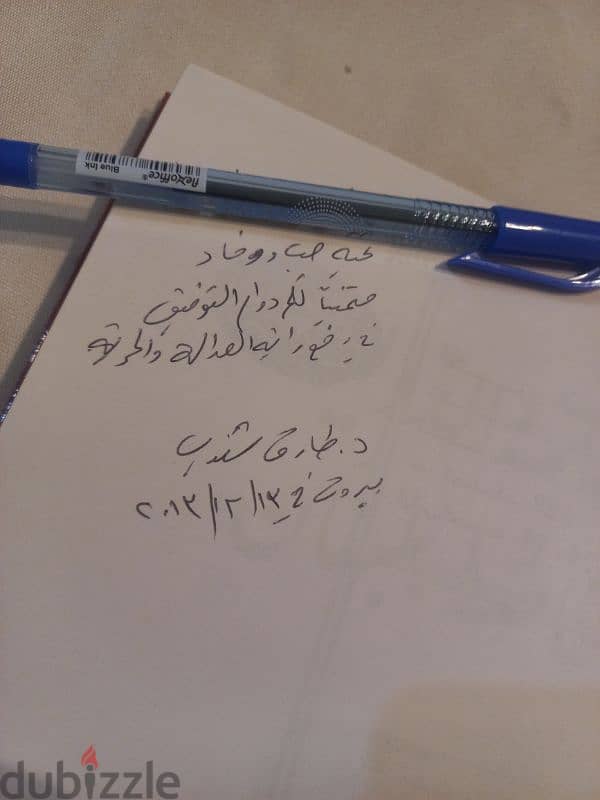 flexoffice®
Blue Ink
تحية حب ووفاء
متمنياً لكم دوام التوفيق
في رفع راية العدالة والحرية
د. طارق شندب
بيروت في ٢٠١٣/١٢/١٣
dubizzle